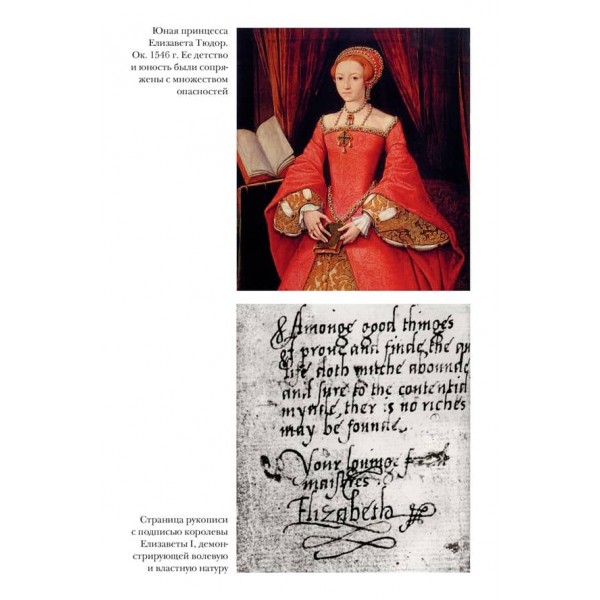 Юная принцесса
Елизавета Тюдор.
Ок. 1546 г. Ее детство
и юность были сопря-
жены с множеством
опасностей
& Amonge good thinges
I prove and finde, the qu
life doth mutche abounde
and sure to the contentid
mynde, ther is no riches
may be founde.
Your lovinge
maistres
Elizabeth
Страница рукописи
с подписью королевы
Елизаветы I, демон-
стрирующей волевую
и властную натуру